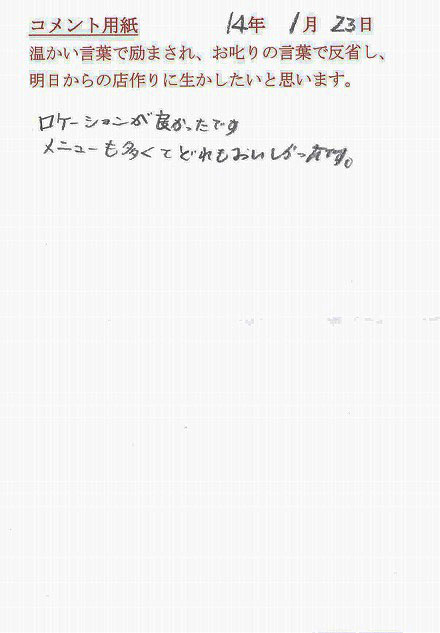 コメント用紙 14年 1月 23日
温かい言葉で励まされ、お叱りの言葉で反省し、
明日からの店作りに生かしたいと思います。
ロケーションが良かったです
メニューも多くてどれもおいしかったです。